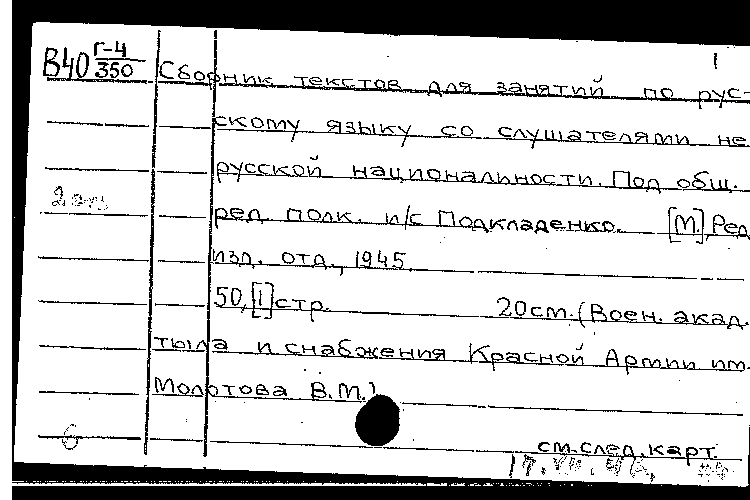 1
В40 Г-4/350 Сборник текстов для занятий по рус-
скому языку со слушателями не
русской национальности. Под общ.
ред. полк. и/с Подкладенко. [М.], Ред.
изд. отд., 1945.
50, [1] стр. 20 см. (Воен. акад.
тыла и снабжения Красной Армии им.
Молотова В.М.)
6
см. след. карт.